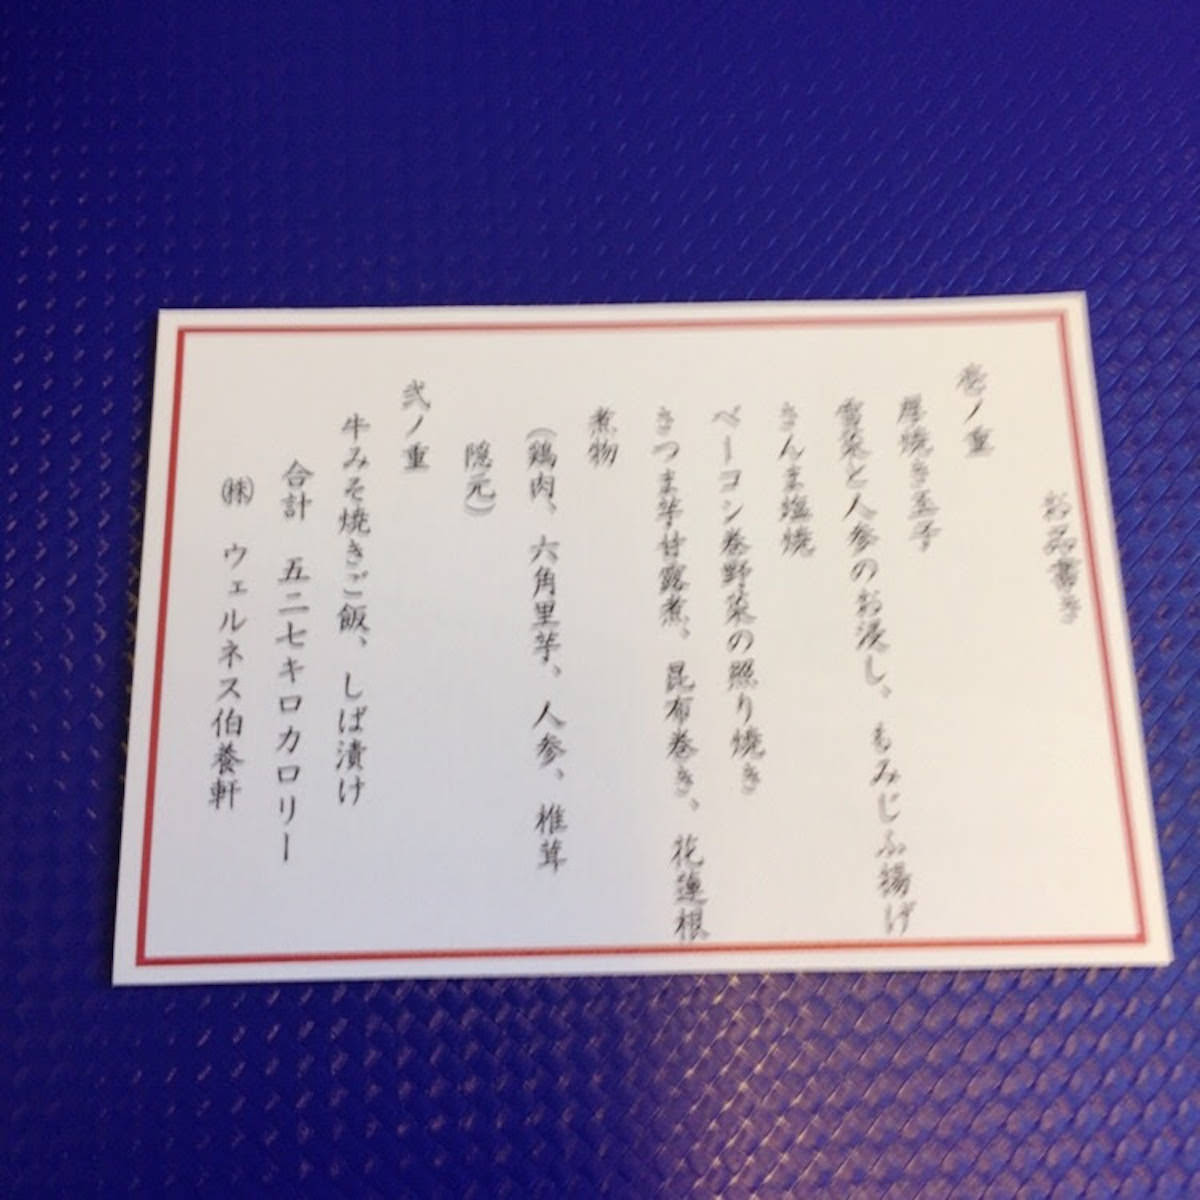 お品書き
壱ノ重
厚焼き玉子
雪菜と人参のお浸し、もみじふ揚げ
さんま塩焼
ベーコン巻野菜の照り焼き
さつま芋甘露煮、昆布巻き、花蓮根
煮物
（鶏肉、六角里芋、人参、椎茸
隠元）
弐ノ重
牛みそ焼きご飯、しば漬け
合計　五二七キロカロリー
㈱　ウェルネス伯養軒